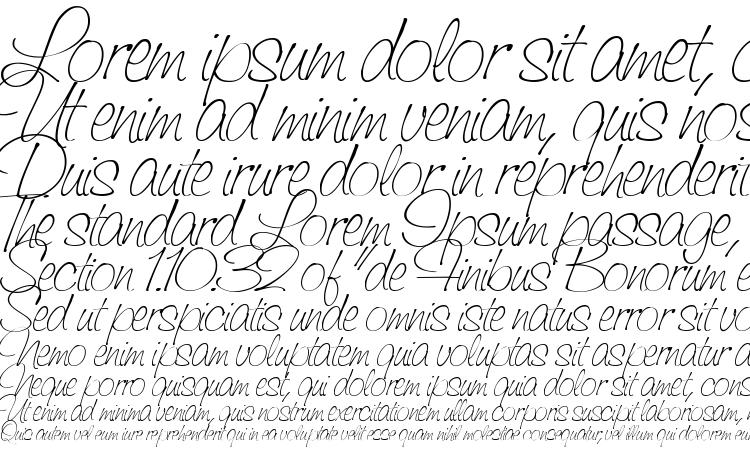 Lorem ipsum dolor sit amet, c
Ut enim ad minim veniam, quis nos
Duis aute irure dolor in reprehenderit
The standard Lorem Ipsum passage,
Section 1.10.32 of "de Finibus Bonorum e
Sed ut perspiciatis unde omnis iste natus error sit vo
Nemo enim ipsam voluptatem quia voluptas sit aspernatur a
Neque porro quisquam est, qui dolorem ipsum quia dolor sit amet, cons
Ut enim ad minima veniam, quis nostrum exercitationem ullam corporis suscipit laboriosam, n
Quis autem vel eum iure reprehenderit qui in ea voluptate velit esse quam nihil molestiae consequatur, vel illum qui dolorem eum